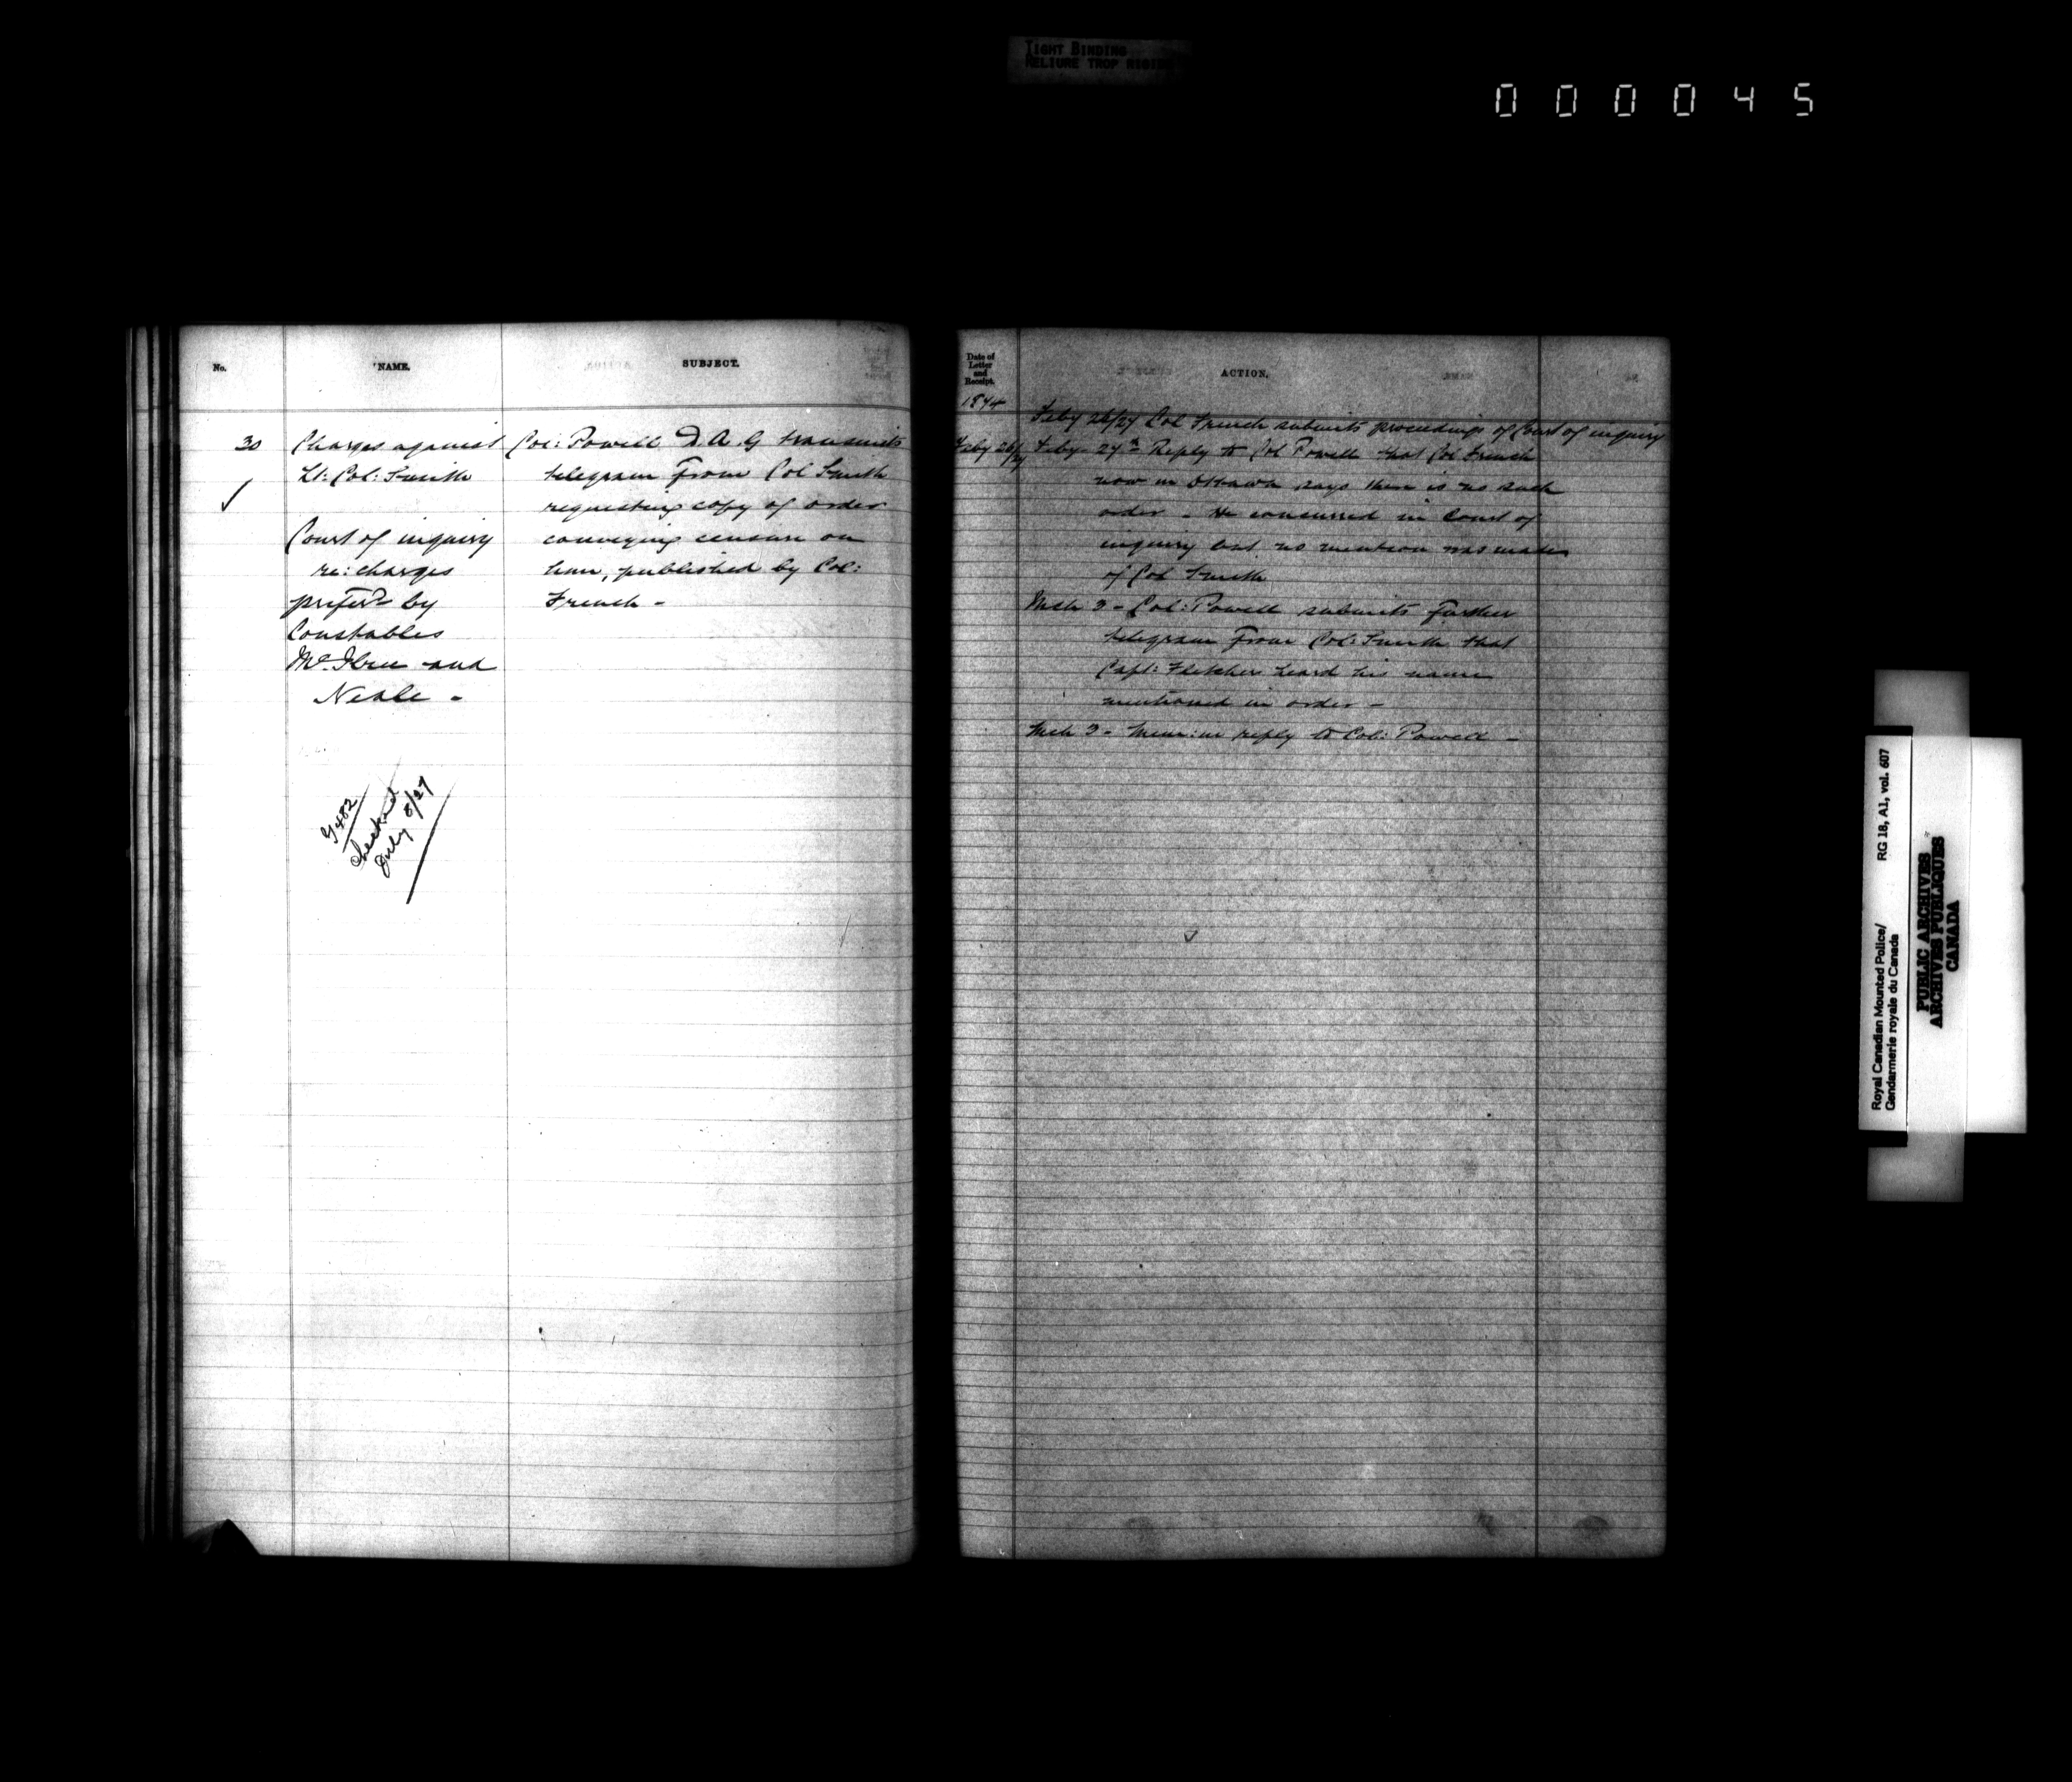 TIGHT BINDING
RELIURE TROP RIGIDE
000045
No.
NAME.
SUBJECT.
30
Charges against
Lt: Col: Smith
Court of inquiry
re: charges
prefer'd by
Constables
and
Neale -
Col: Powell D.A.G transmits
telegram from Col Smith
requesting copy of order
conveying censure on
him, published by Col:
French -
G 482
Checked
July 8/27
Date of
Letter
and
Receipt.
ACTION.
1874
Feby 26/27 Col French submits proceedings of Court of inquiry
Feby 26/27
Feby - 27th Reply to Col Powell that Col French
now in Ottawa says there is no such
order - He concurred in Court of
inquiry but no mention was made
of Col Smith
Mch 3 - Col: Powell submits further
telegram from Col: Smith that
Capt: Fletcher heard his name
mentioned in order -
Mch 3 - Mem: in reply to Col: Powell -
Royal Canadian Mounted Police/
Gendarmerie royale du Canada
RG 18, A1, vol. 607
PUBLIC ARCHIVES
ARCHIVES PUBLIQUES
CANADA